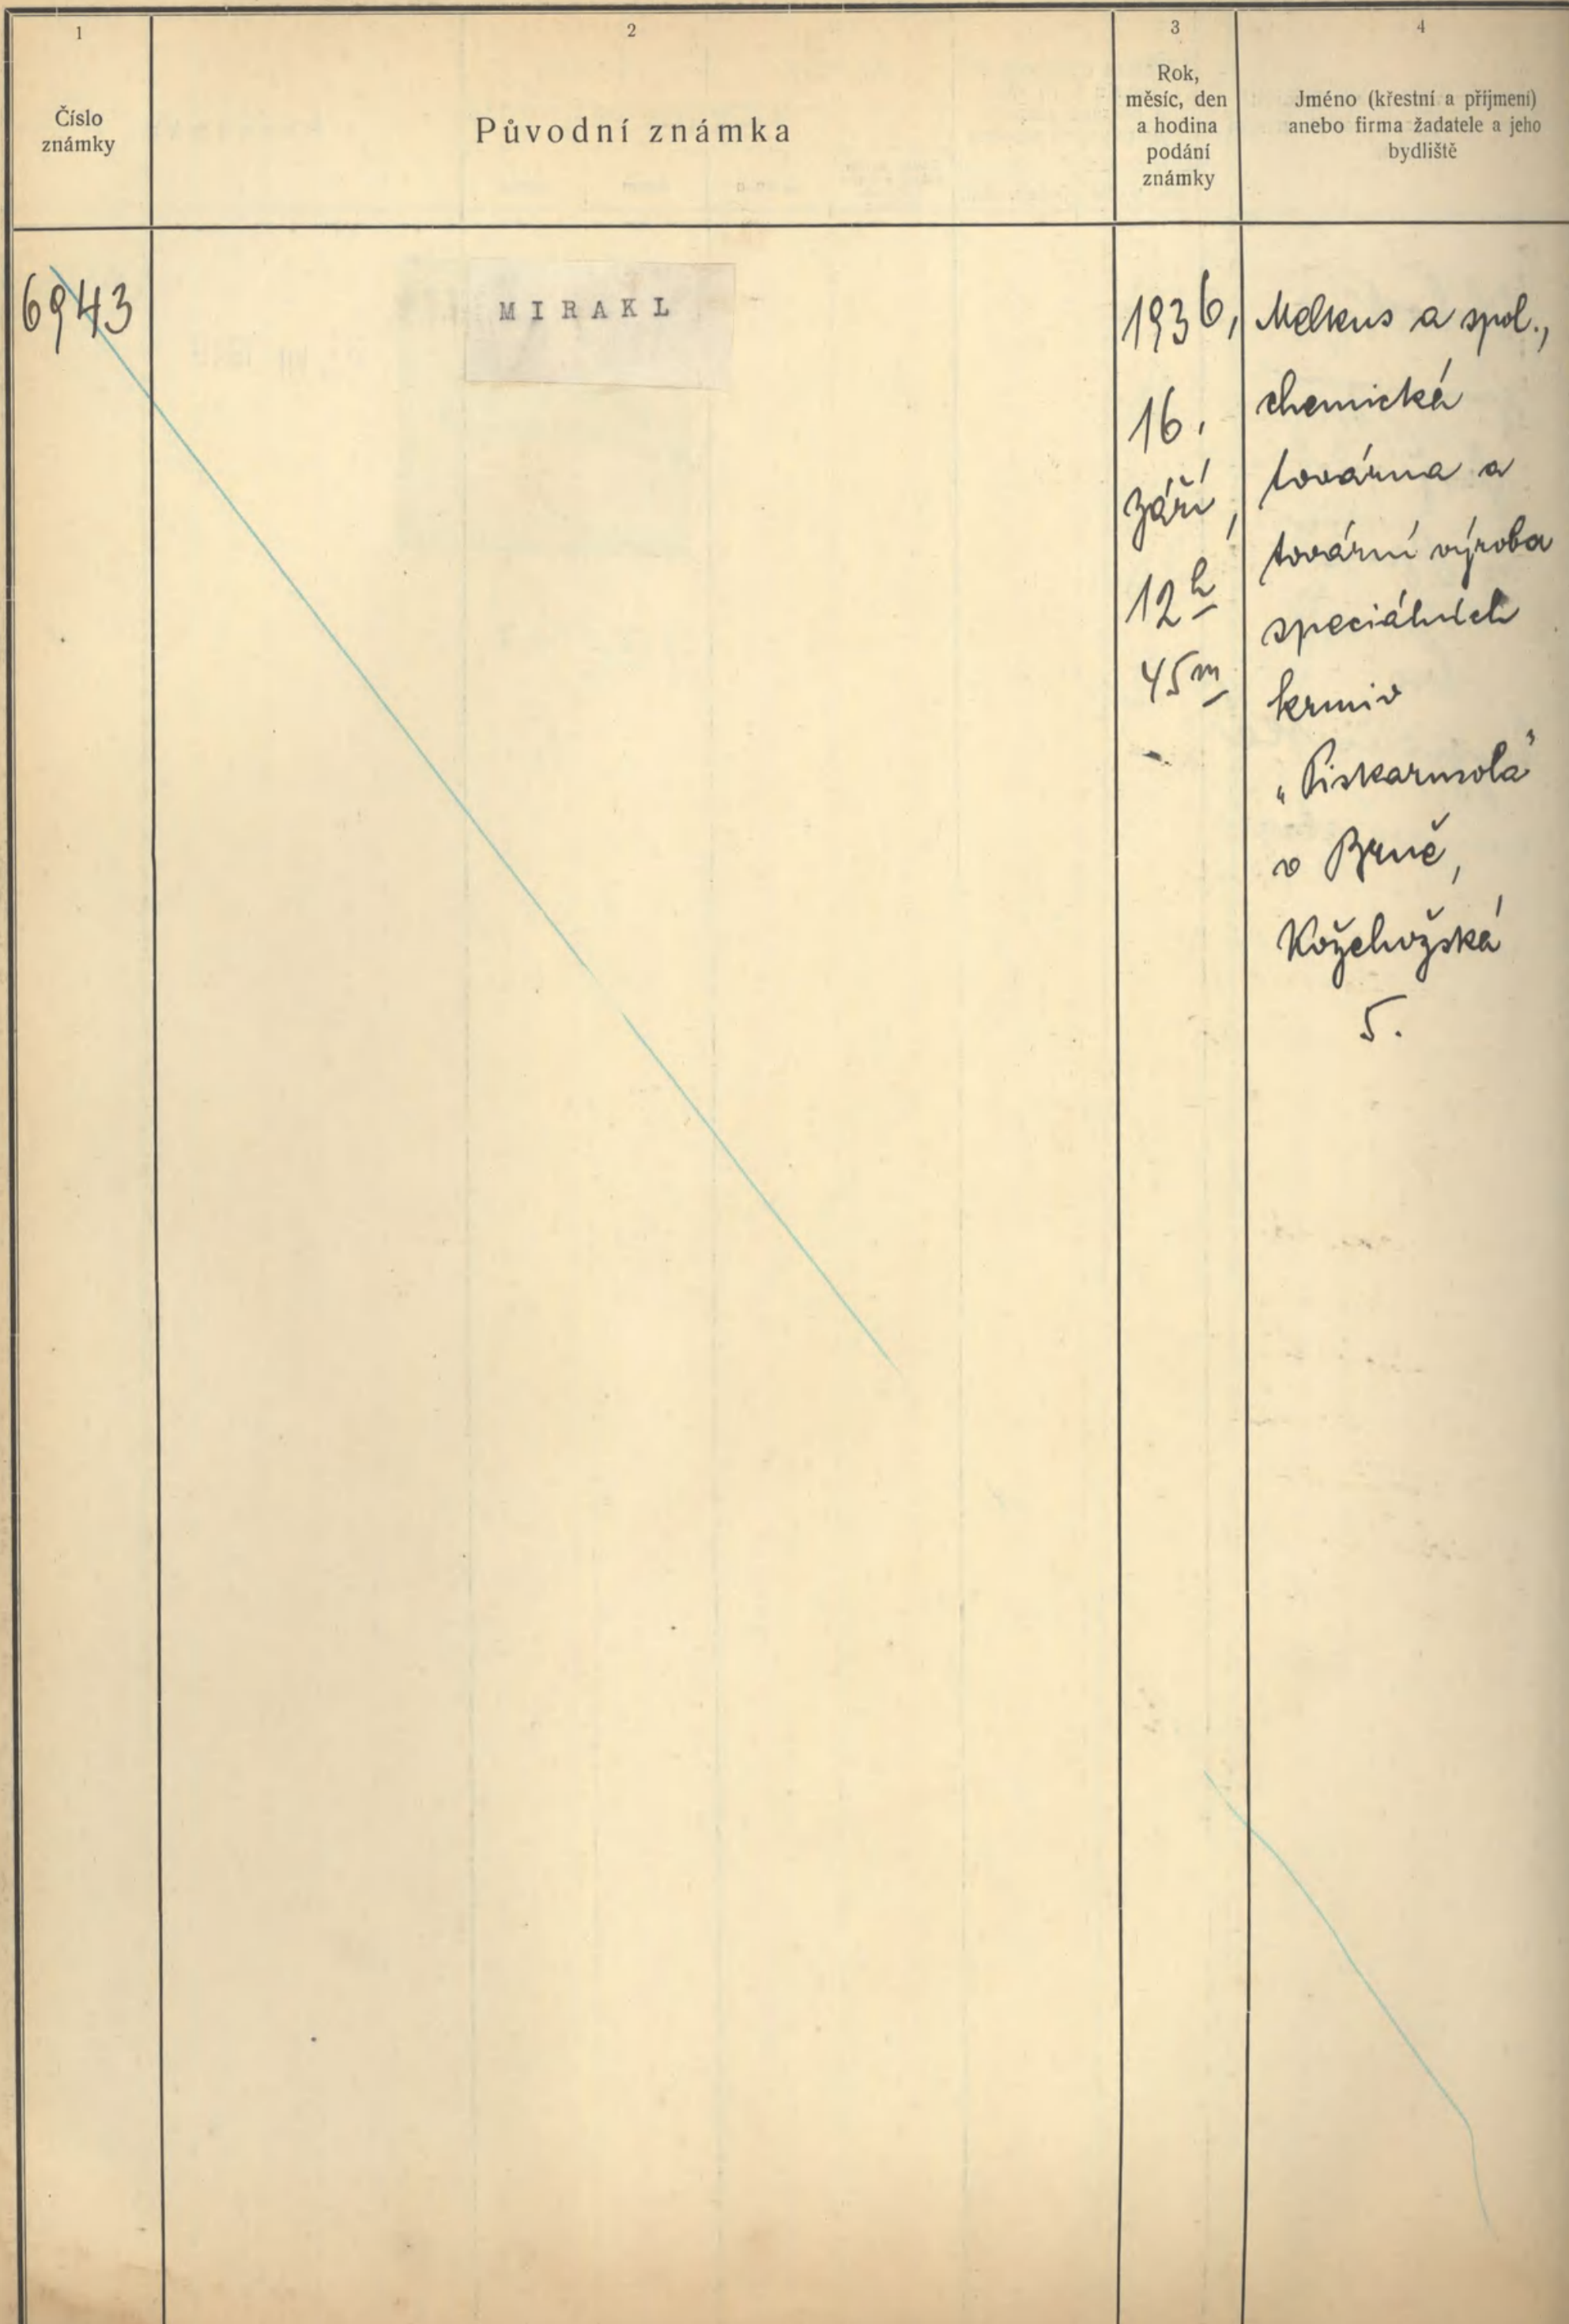 1
Číslo
známky
2
Původní známka
3
Rok,
měsíc, den
a hodina
podání
známky
4
Jméno (křestní a příjmení)
anebo firma žadatele a jeho
bydliště
6943
MIRAKL
1936,
16.
září,
12h
45m
-.
Melkus a spol.,
chemická
továrna a
tovární výroba
speciálních
krmiv
„Piskarmola"
v Brně,
Koželužská
5.